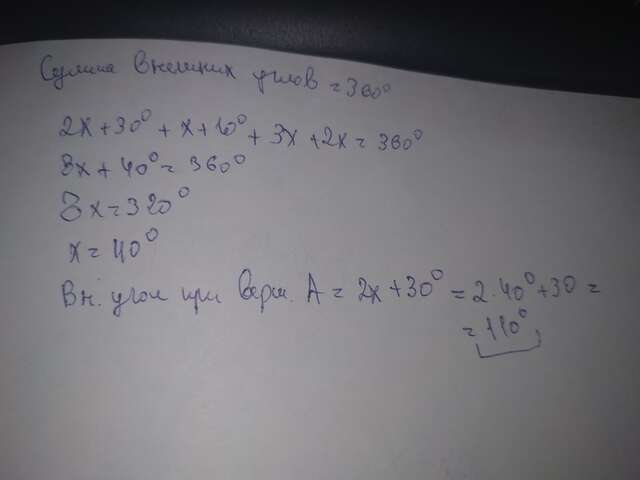 Сумма внешних углов = 360°
2x + 30° + x + 10° + 3x + 2x = 360°
8x + 40° = 360°
8x = 320°
x = 40°
Вн. угол при верш. A = 2x + 30° = 2·40° + 30 =
= 110°